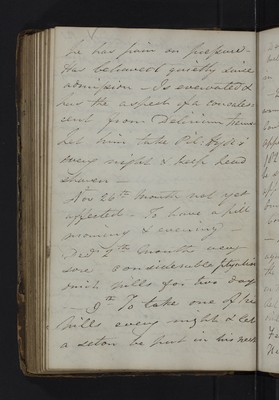 he has pain on pressure -
Has behaved quietly since
admission - Is evacuated &
has the aspect of a convales-
cent from Delirium tremens
Let him take Pil: Hydr: i
every night & keep head
shaven -
Nov 26th Mouth not yet
affected - To have a pill
morning & evening -
Dec 2nd Mouth very
sore considerable ptyalism
omit pills for two days
- 9th To take one of the
pills every night & let
a seton be put in his neck